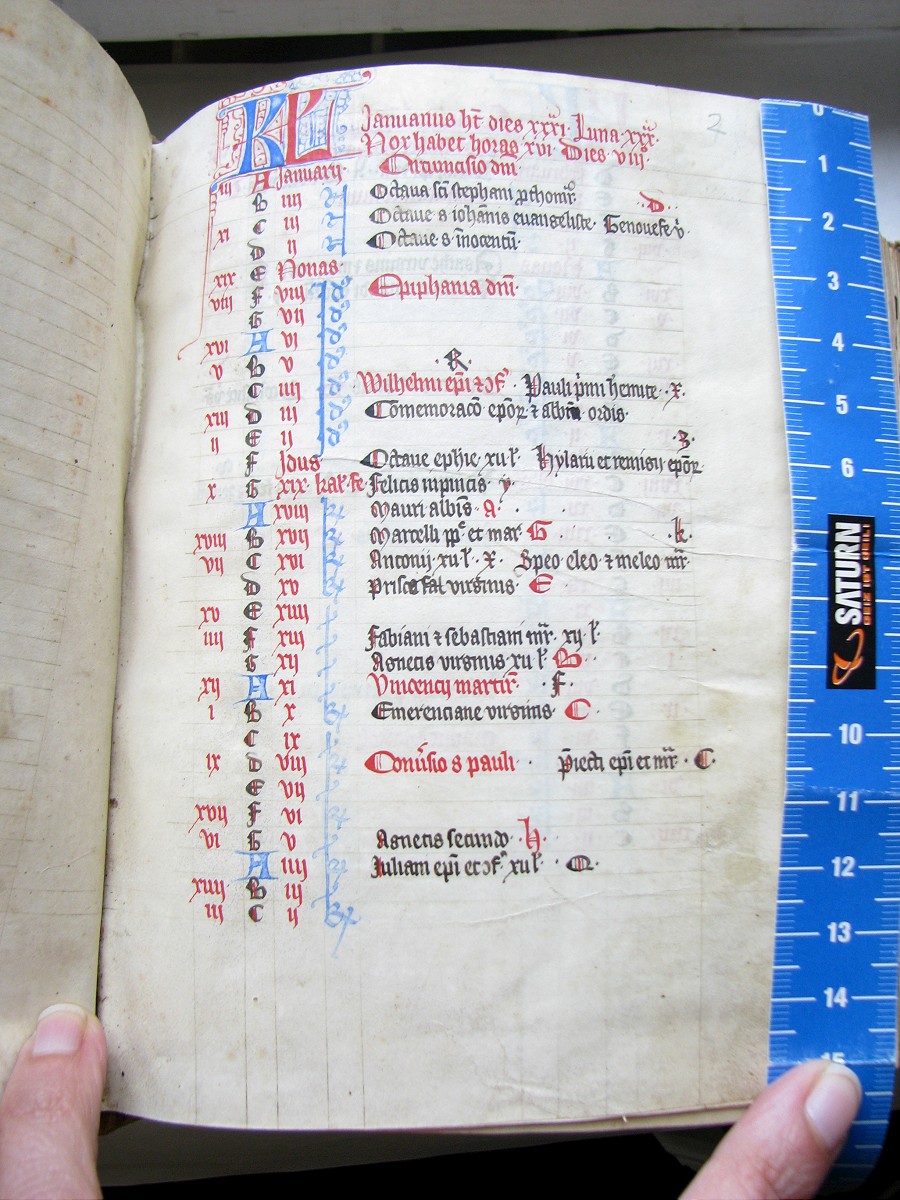 KL Januarius ht dies xxxi Luna xxx
Nox habet horas xvi Dies viii
iii A Januarii Circumcisio dni
B iiii Octaua sci stephani prthomr D
xi C iii Octaue s iohanis euangeliste Genouefe v
D ii Octaue s inocentu
xix E Nonas
viii F viii Epiphania dni
G vii
xvi A vi
v B v R
C iiii Wilhelmi epi Pauli primi hemite x
xiii D iii Comemoraco epor z albin ordis
ii E ii B
F Idus Octaue ephie xii l Hylarii et remigii epor
x G xix kal fe Felicis inpincis
A xviii Mauri albis A
xviii B xvii Marcelli pp et mar G k
vii C xvi Antonii xii l x Speo eleo z meleo mr
D xv Prisce virginis E
xv E xiiii
iiii F xiii Fabiani z sebastiani mr xii l
G xii Agnetis virginis xii l B
xii A xi Vincencii martir F
i B x Emerenciane virginis C
C ix
ix D viii Conuersio s pauli epi et mr C
E vii
xvii F vi
vi G v Agnetis secundo h
A iiii Iuliani epi et xii l
xiiii B iii
iii C ii
2
0
1
2
3
4
5
6
SATURN
GEIZ IST GEIL!
10
11
12
13
14
15